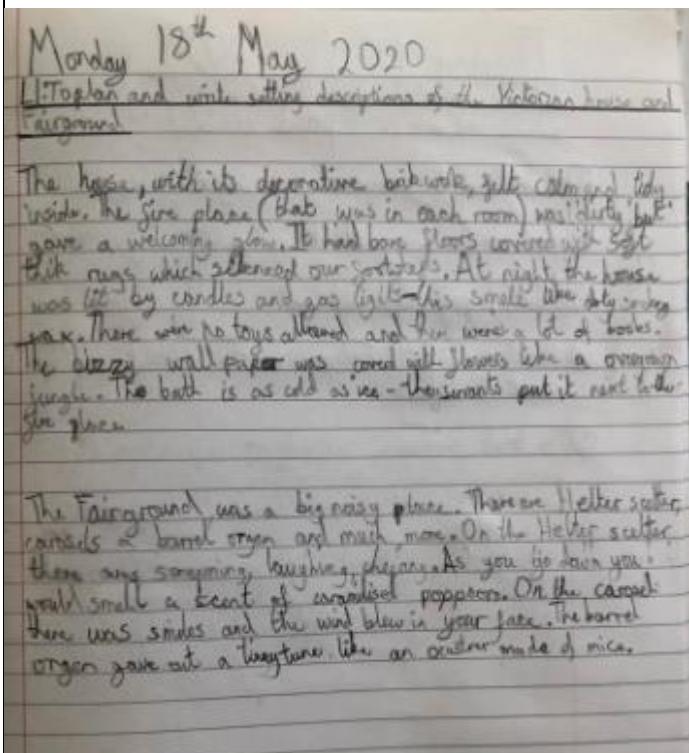 Monday 18th May 2020
LI: To plan and write setting descriptions of the Victorian house and
Fairground
The house, with its decorative felt calm and tidy
inside. The fire place (that was in each room) was dirty but
gave a welcoming glow. It had bare floors covered with soft
thik rugs which our At night the house
was lit by candles and gas this like smokey
There were no toys allowed and there were a lot of books.
The wall paper was with flowers like a overgrown
jungle. The bath is as cold as ice - the servants put it next to the
fire place
The Fairground was a big noisy place. There are Helter
a barrel organ and much more. On the Helter
there was laughing, As you go down you
would smell a scent of popporn. On the
there was smiles and the wind blew in your face. The barrel
organ gave out a tune like an made of mice.